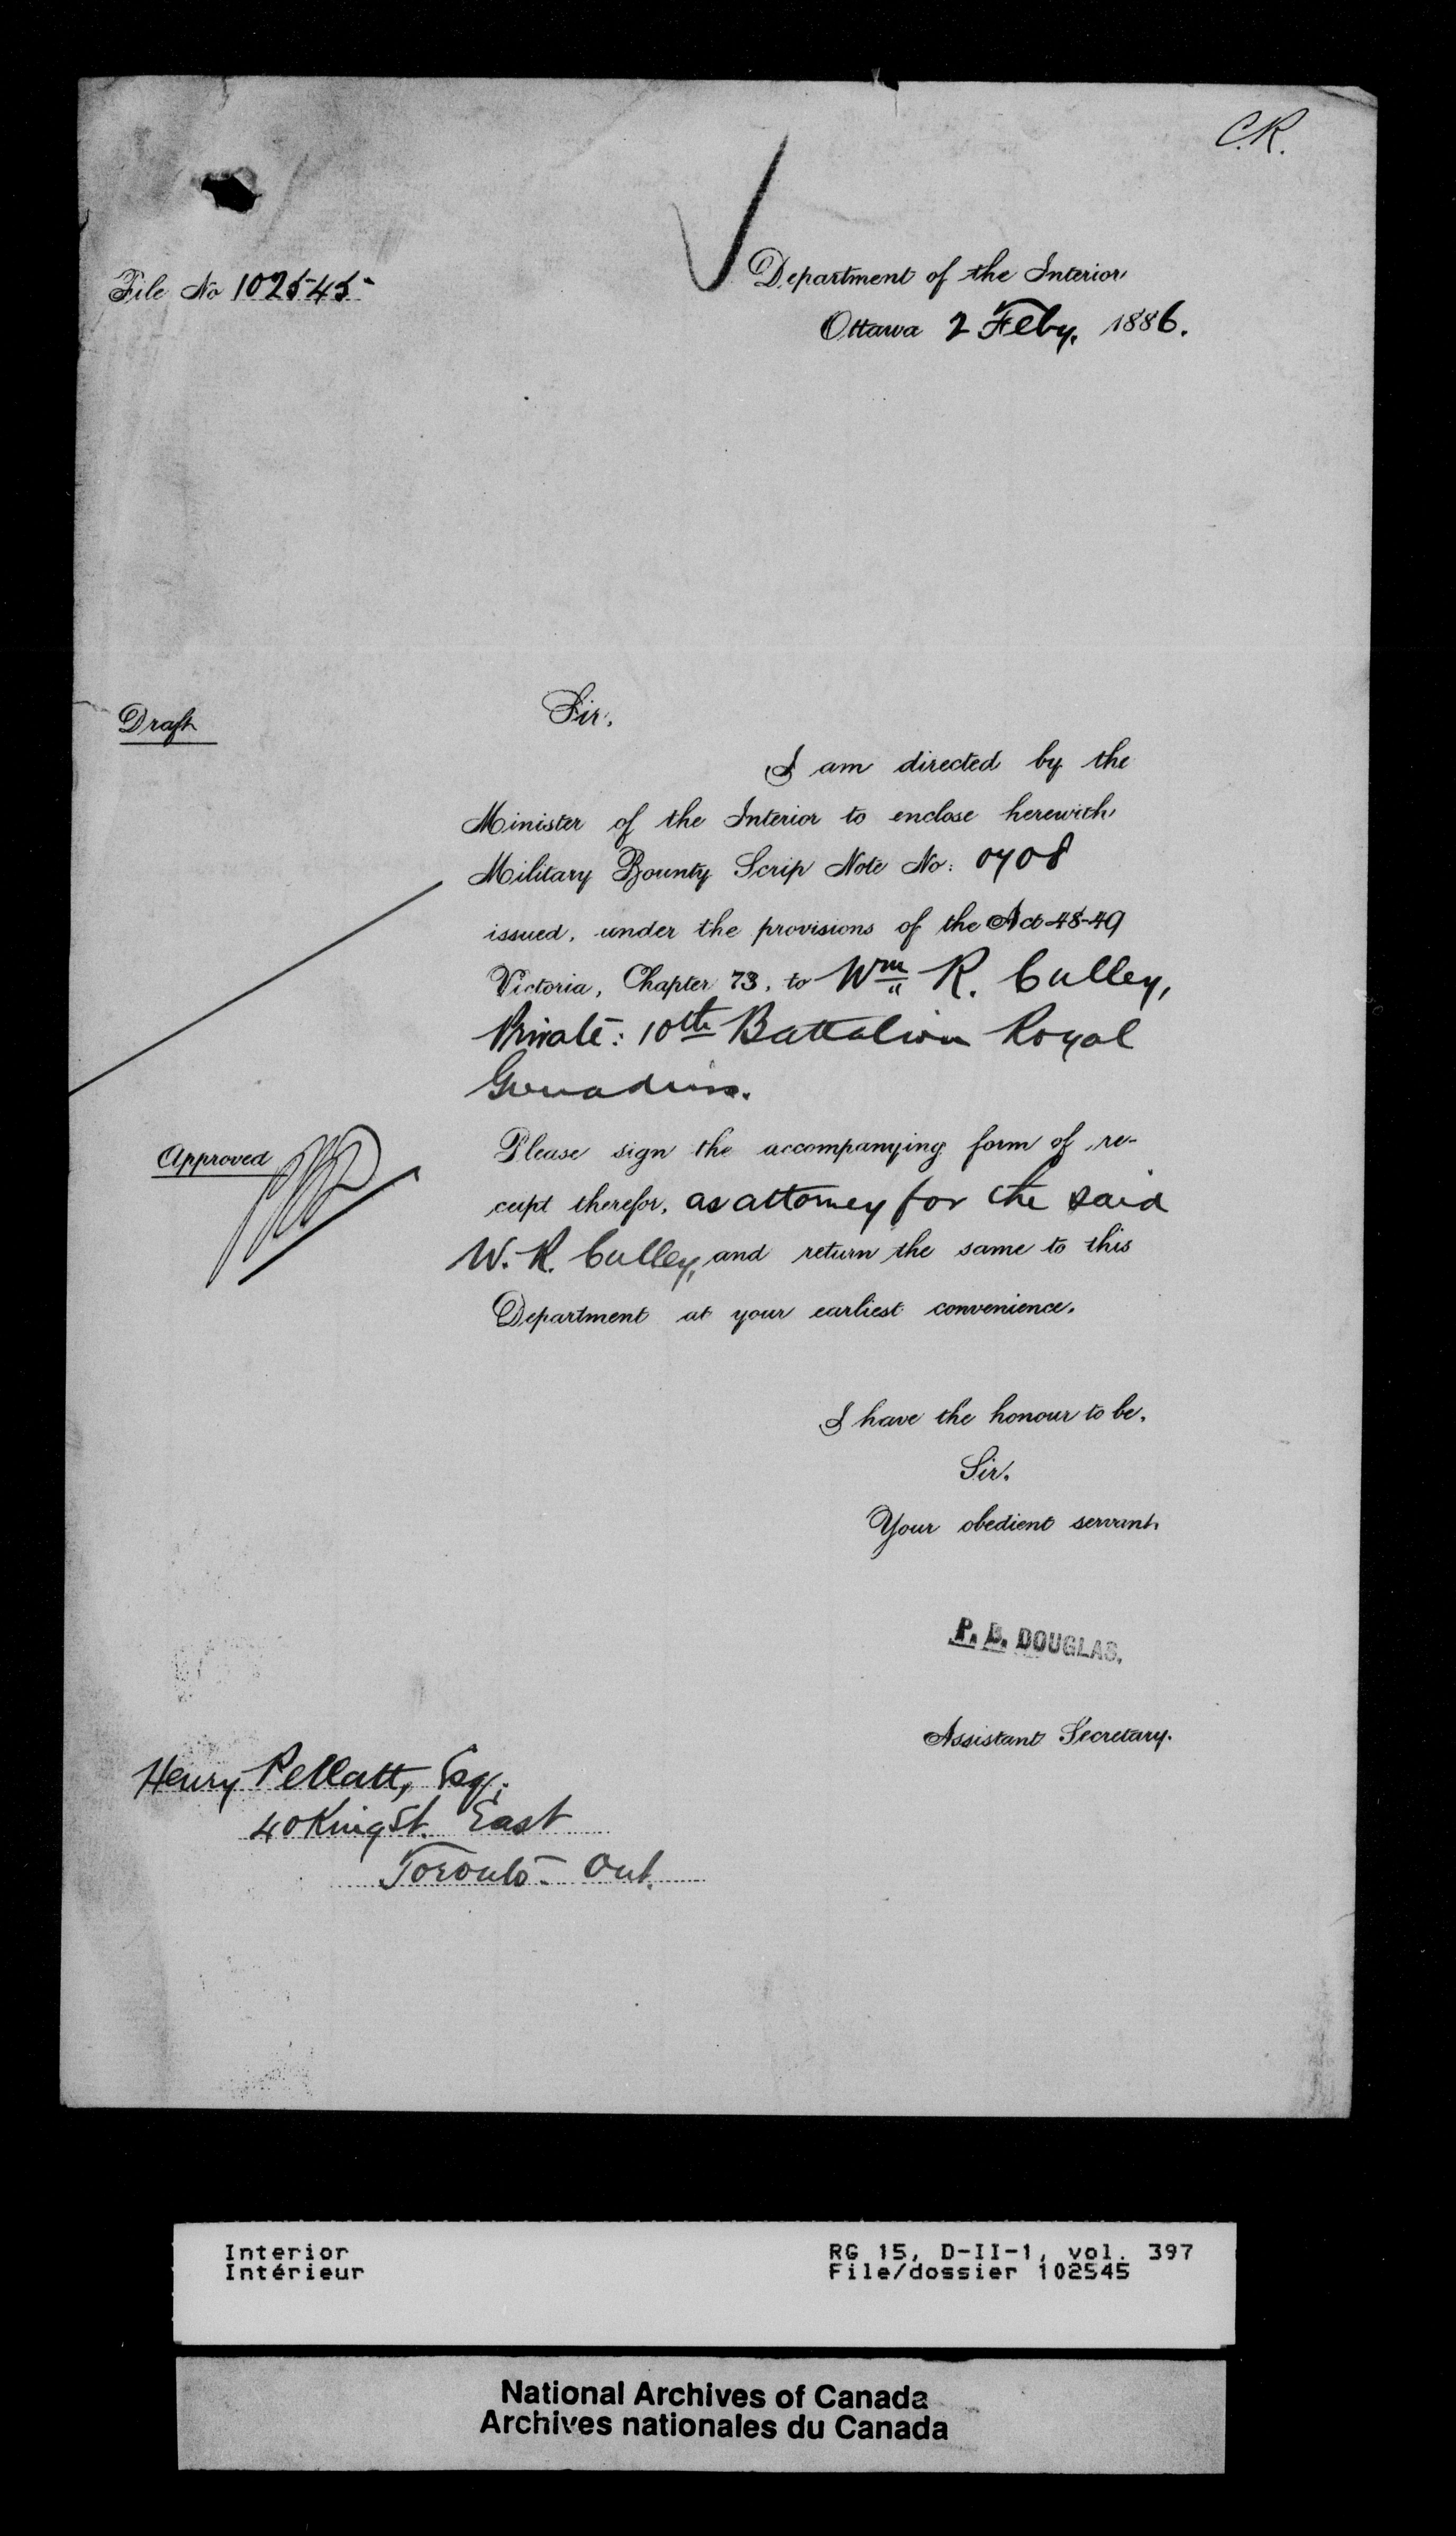 C.R.
File No 102545
Department of the Interior
Ottawa 2 Feby. 1886.
Draft
Sir,
I am directed by the
Minister of the Interior to enclose herewith
Military Bounty Scrip Note No: 0708
issued, under the provisions of the Act 48-49
Victoria, Chapter 73, to Wm R. Culley,
Private: 10th Battalion Royal
Grenadiers.
Approved
Please sign the accompanying form of re-
ceipt therefor, as attorney for the said
W. R. Culley, and return the same to this
Department at your earliest convenience.
I have the honour to be,
Sir,
Your obedient servant,
P. B. DOUGLAS,
Assistant Secretary.
Henry Pellatt, Esq.
40 King St. East
Toronto - Ont.
Interior
Intérieur
RG 15, D-II-1, vol. 397
File/dossier 102545
National Archives of Canada
Archives nationales du Canada